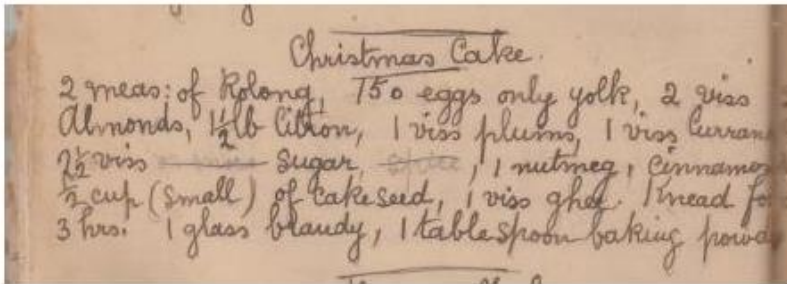 Christmas Cake.
2 meas: of Rolong, 150 eggs only yolk, 2 viss
Almonds, 1½ lb Citron, 1 viss plums, 1 viss Curran
2½ viss sugar, spice, 1 nutmeg, Cinnamon
½ cup (small) of cakeseed, 1 viss ghee. Knead fo
3 hrs. 1 glass brandy, 1 tablespoon baking powd